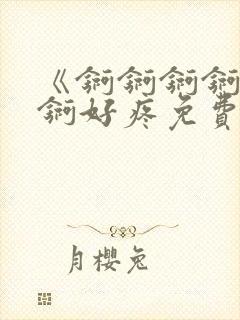 《锕锕锕锕
锕好疼免費
月櫻兔